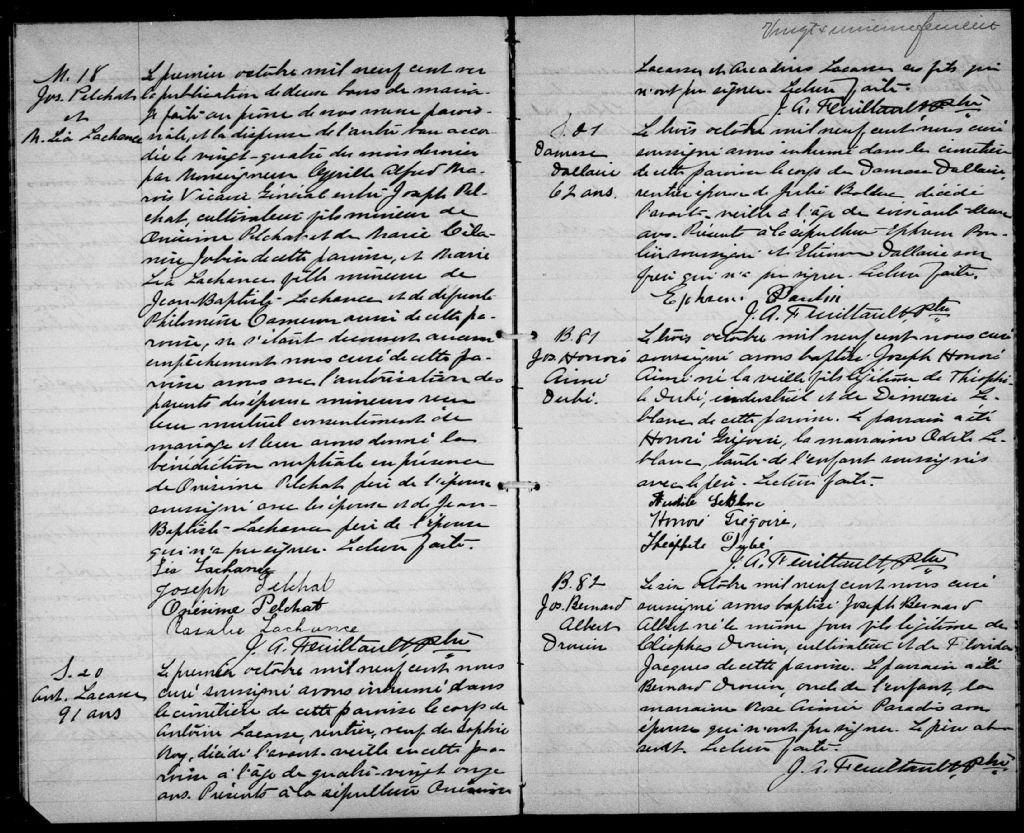 M. 18
Jos. Pelchat
et
M. Léa Lachance
Le premier octobre mil neuf cent vu
la publication de deux bans de maria-
ge faite au prône de nos messe parois-
siale, et la dispense de l'autre ban accor-
dée le vingt-quatre du mois dernier
par Monseigneur Cyrille Alfred Ma-
rois Vicaire Général entre Joseph Pel-
chat, cultivateur fils mineur de
Onésime Pelchat et de Marie
de cette paroisse, et Marie
Léa Lachance fille mineure de
Jean-Baptiste Lachance et de défunte
Philomène Cameron aussi de cette pa-
roisse, ne s'étant découvert aucun
empêchement nous curé de cette pa-
roisse avons avec l'autorisation des
parents des époux mineurs reçu
leur mutuel consentement de
mariage et leur avons donné la
bénédiction nuptiale en présence
de Onésime Pelchat père de l'époux
soussigné avec les époux et de Jean-
Baptiste Lachance père de l'épouse
qui n'a pu signer. Lecture faite.
Léa Lachance
Joseph Pelchat
Onésime Pelchat
Rosalie Lachance
J. A. Feuiltault, Ptre
S. 20
Ant. Lacasse
91 ans
Le premier octobre mil neuf cent, nous
curé soussigné avons inhumé dans
le cimetière de cette paroisse le corps de
Antoine Lacasse, rentier, veuf de Sophie
Roy, décédé l'avant-veille en cette pa-
roisse à l'âge de quatre-vingt onze
ans. Présents à la sépulture Onésime
Vingt & unième feuillet
Lacasse et Arcadius Lacasse ses fils qui
n'ont pu signer. Lecture faite.
J. A. Feuiltault, Ptre
S. 21
Damase
Dallaire
62 ans.
Le trois octobre mil neuf cent nous curé
soussigné avons inhumé dans le cimetière
de cette paroisse le corps de Damase Dallaire,
rentier époux de Bolduc, décédé
l'avant-veille à l'âge de soixante-deux
ans. Présents à la sépulture Ephrem Pou-
lin soussigné et Etienne Dallaire son
frère qui n'a pu signer. Lecture faite.
Ephrem Poulin
J. A. Feuiltault, Ptre
B. 81
Jos. Honoré
Aimé
Dubé.
Le trois octobre mil neuf cent nous curé
soussigné avons baptisé Joseph Honoré
Aimé né la veille fils légitime de Théophi-
le Dubé, industriel et de Demerise Le-
blanc de cette paroisse. Le parrain a été
Honoré Grégoire, la marraine Odile Le-
blanc, tante de l'enfant soussignés
avec le père. Lecture faite.
Leblanc
Honoré Grégoire,
Théophile Dubé
J. A. Feuiltault, Ptre
B. 82
Jos. Bernard
Albert
Drouin
Le six octobre mil neuf cent, nous curé
soussigné avons baptisé Joseph Bernard
Albert né le même jour fils légitime de
Cléophas Drouin, cultivateur et de Florida
Jacques de cette paroisse. Le parrain a été
Bernard Drouin, oncle de l'enfant, la
marraine Rose Aimée Paradis son
épouse qui n'ont pu signer. Le père ab-
sent. Lecture faite.
J. A. Feuiltault, Ptre